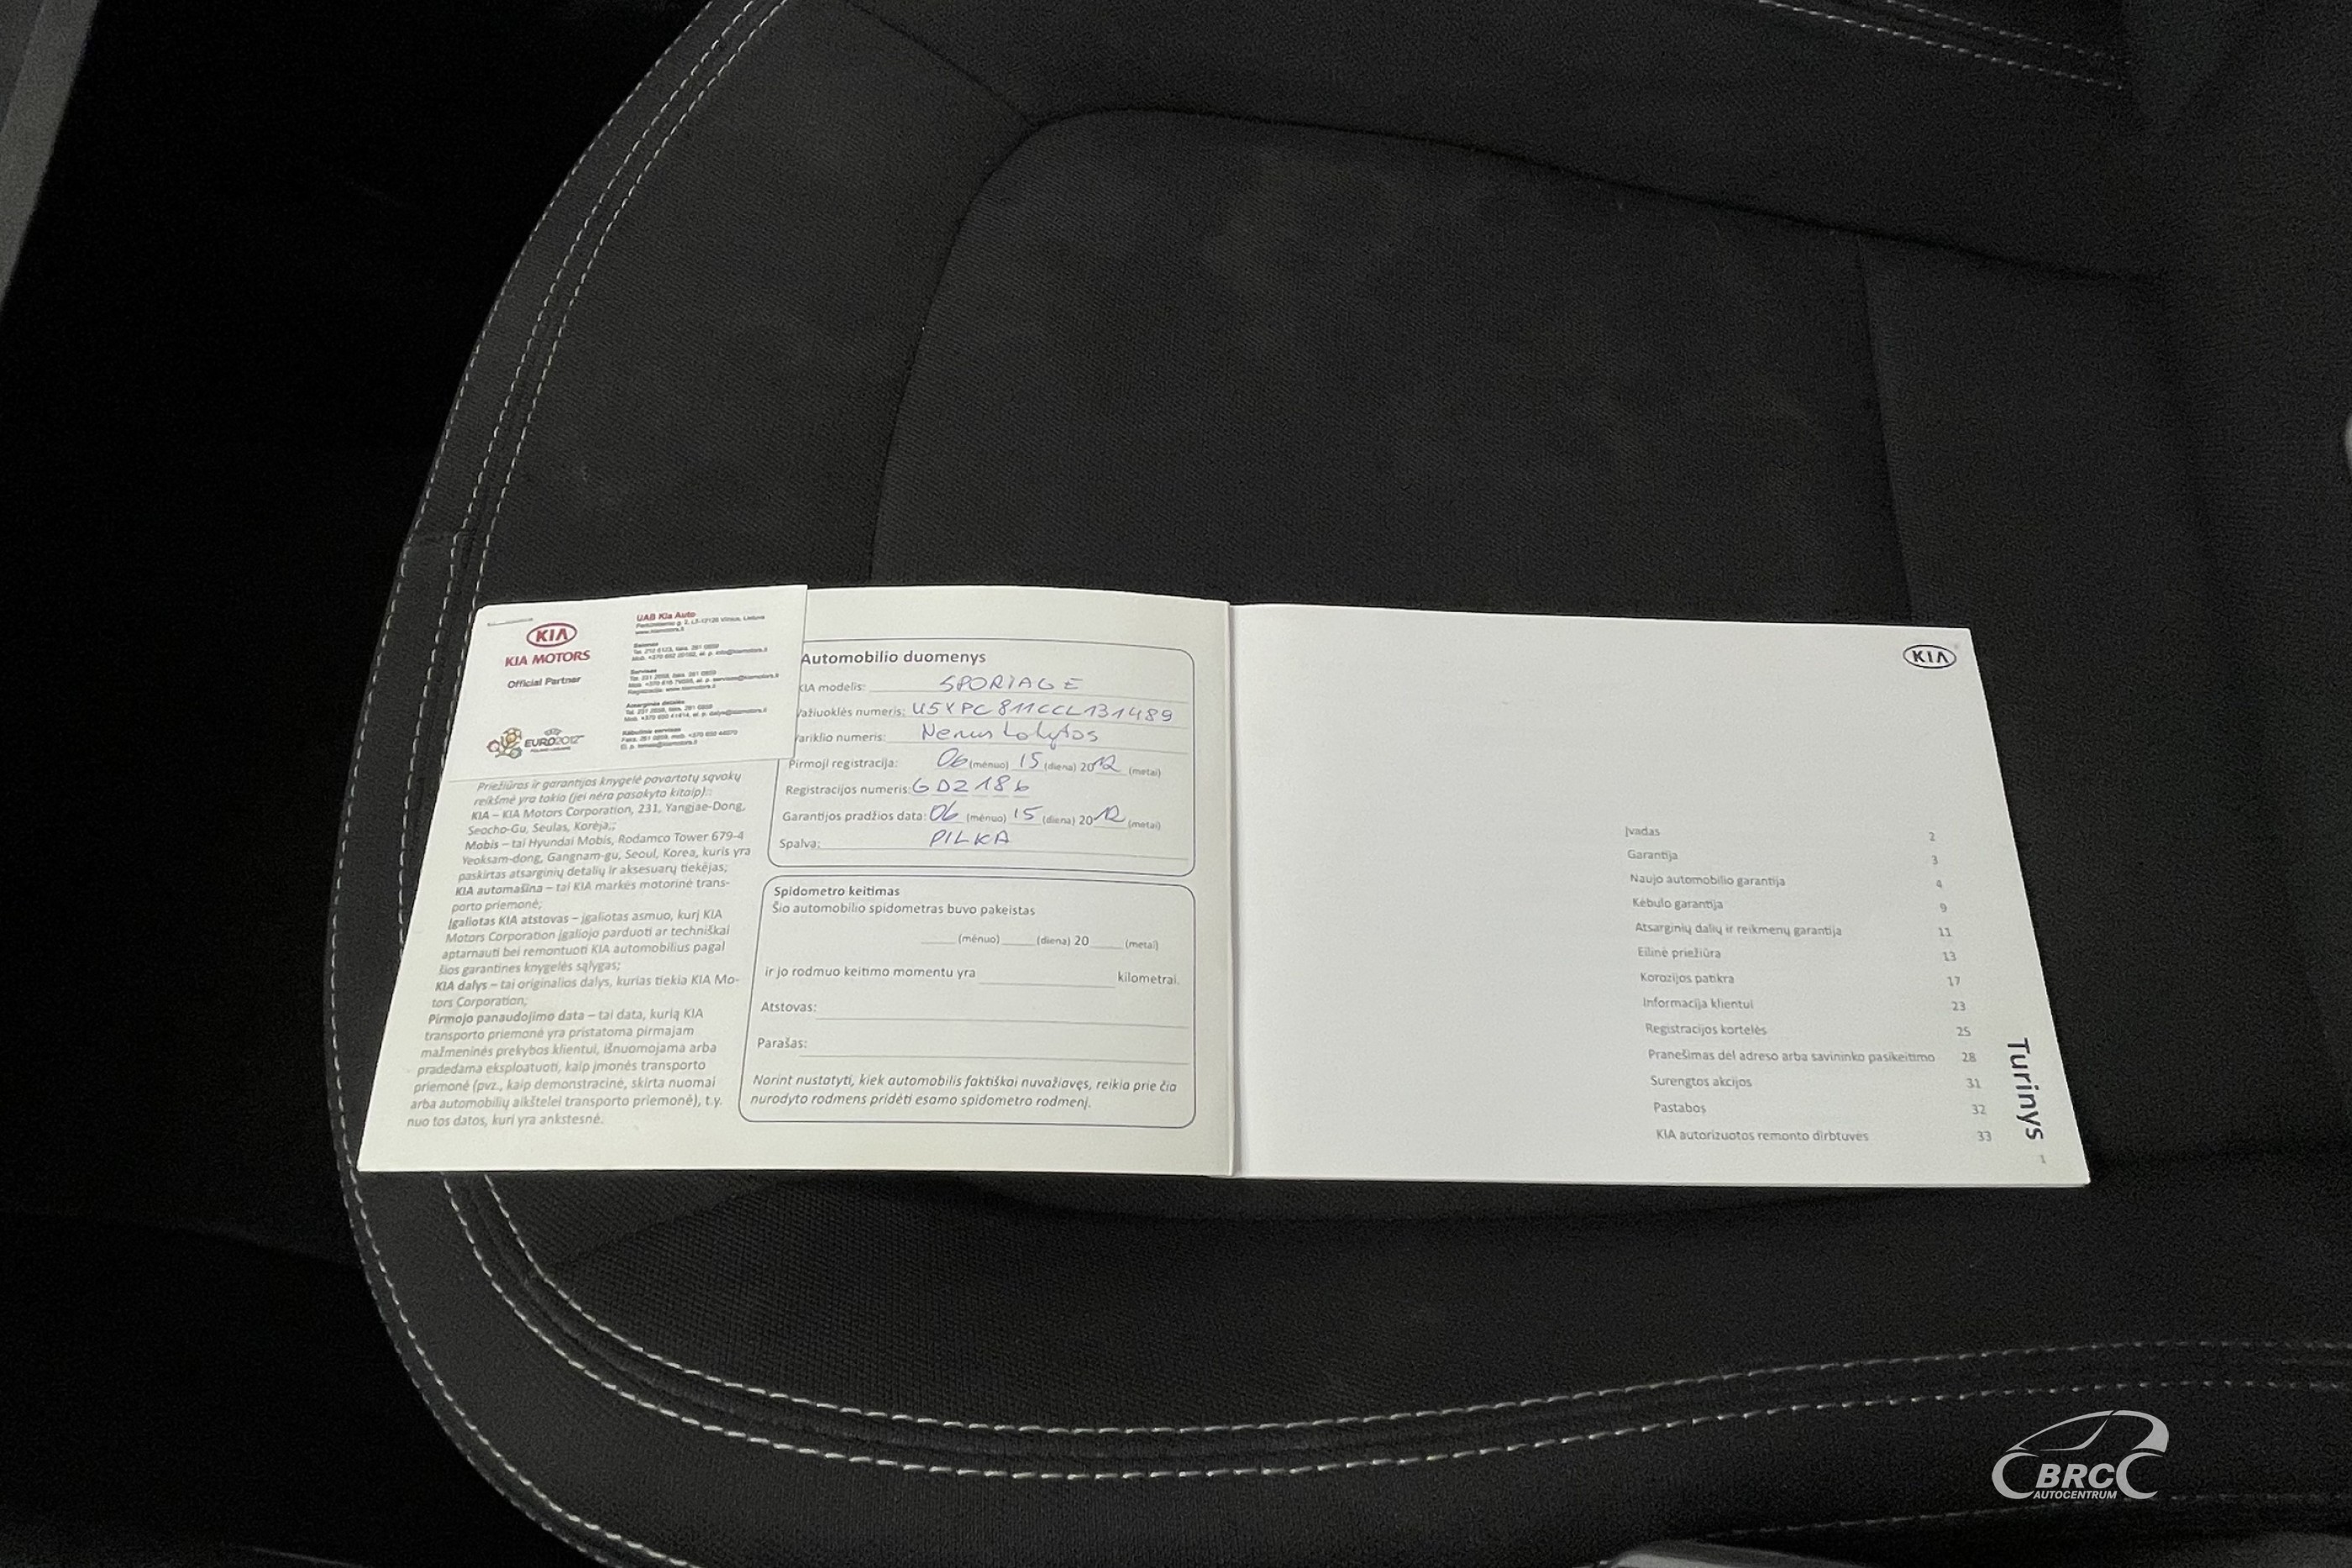 KIA
KIA MOTORS
Official Partner
EURO2012
UAB Kia Auto
Automobilio duomenys
KIA modelis: SPORTAGE
Važiuoklės numeris: U5YPC811CCL131489
Variklio numeris:
Pirmoji registracija: 06 (mėnuo) 15 (diena) 2012 (metai)
Registracijos numeris: GDZ186
Garantijos pradžios data: 06 (mėnuo) 15 (diena) 2012 (metai)
Spalva: PILKA
Priežiūros ir garantijos knygelė pavartotų sąvokų
reikšmė yra tokia (jei nėra pasakyta kitaip):
KIA – KIA Motors Corporation, 231, Yangjae-Dong,
Seocho-Gu, Seulas, Korėja,;
Mobis – tai Hyundai Mobis, Rodamco Tower 679-4
Yeoksam-dong, Gangnam-gu, Seoul, Korea, kuris yra
paskirtas atsarginių detalių ir aksesuarų tiekėjas;
KIA automašina – tai KIA markės motorinė trans-
porto priemonė;
Įgaliotas KIA atstovas – įgaliotas asmuo, kurį KIA
Motors Corporation įgaliojo parduoti ar techniškai
aptarnauti bei remontuoti KIA automobilius pagal
šios garantinės knygelės sąlygas;
KIA dalys – tai originalios dalys, kurias tiekia KIA Mo-
tors Corporation;
Pirmojo panaudojimo data – tai data, kurią KIA
transporto priemonė yra pristatoma pirmajam
mažmeninės prekybos klientui, išnuomojama arba
pradedama eksploatuoti, kaip įmonės transporto
priemonė (pvz., kaip demonstracinė, skirta nuomai
arba automobilių aikštelei transporto priemonė), t.y.
nuo tos datos, kuri yra ankstesnė.
Spidometro keitimas
Šio automobilio spidometras buvo pakeistas
(mėnuo) (diena) 20 (metai)
ir jo rodmuo keitimo momentu yra kilometrai.
Atstovas:
Parašas:
Norint nustatyti, kiek automobilis faktiškai nuvažiavęs, reikia prie čia
nurodyto rodmens pridėti esamo spidometro rodmenį.
KIA
Įvadas 2
Garantija 3
Naujo automobilio garantija 4
Kėbulo garantija 9
Atsarginių dalių ir reikmenų garantija 11
Eilinė priežiūra 13
Korozijos patikra 17
Informacija klientui 23
Registracijos kortelės 25
Pranešimas dėl adreso arba savininko pasikeitimo 28
Surengtos akcijos 31
Pastabos 32
KIA autorizuotos remonto dirbtuvės 33
Turinys
1
BRC
AUTOCENTRUM